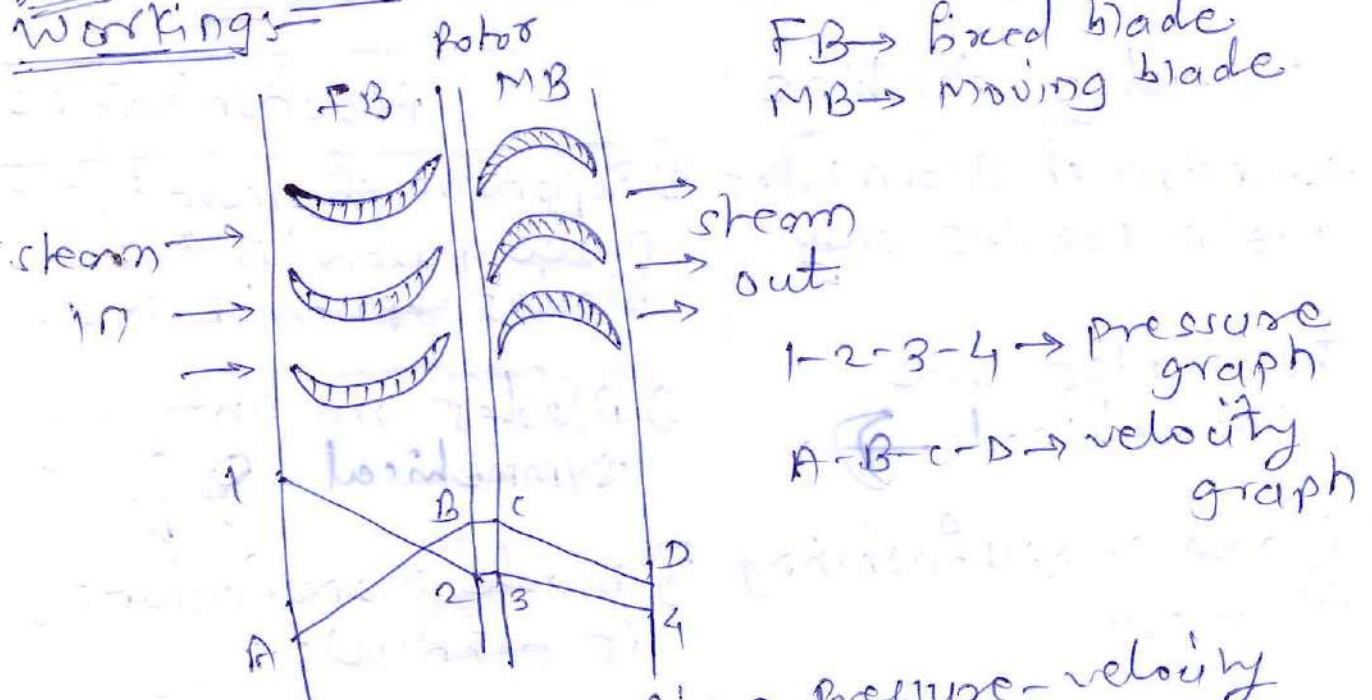 Workings:-
Rotor
FB
MB
FB → fixed blade
MB → Moving blade
steam
in
steam
out
1-2-3-4 → pressure
graph
A-B-C-D → velocity
graph
1
B C
D
2 3
4
A
Pressure-velocity